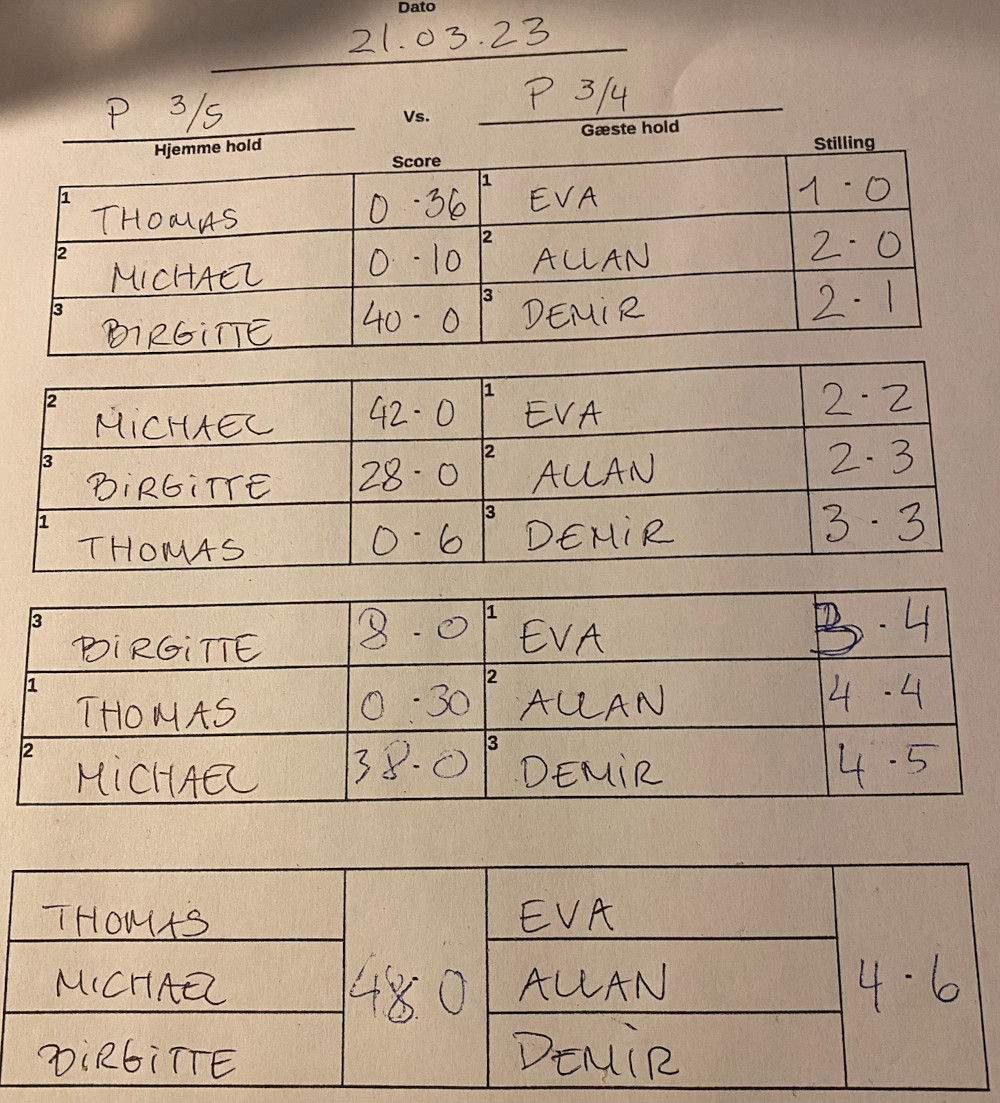 Dato
21.03.23
P 3/5 Vs. P 3/4
Hjemme hold Gæste hold
Score Stilling
1 THOMAS 0 · 36 1 EVA 1 · 0
2 MICHAEL 0 · 10 2 ALLAN 2 · 0
3 BIRGITTE 40 · 0 3 DEMIR 2 · 1
2 MICHAEL 42 · 0 1 EVA 2 · 2
3 BIRGITTE 28 · 0 2 ALLAN 2 · 3
1 THOMAS 0 · 6 3 DEMIR 3 · 3
3 BIRGITTE 8 · 0 1 EVA 3 · 4
1 THOMAS 0 · 30 2 ALLAN 4 · 4
2 MICHAEL 38 · 0 3 DEMIR 4 · 5
THOMAS EVA
MICHAEL 48 · 0 ALLAN 4 · 6
BIRGITTE DEMIR